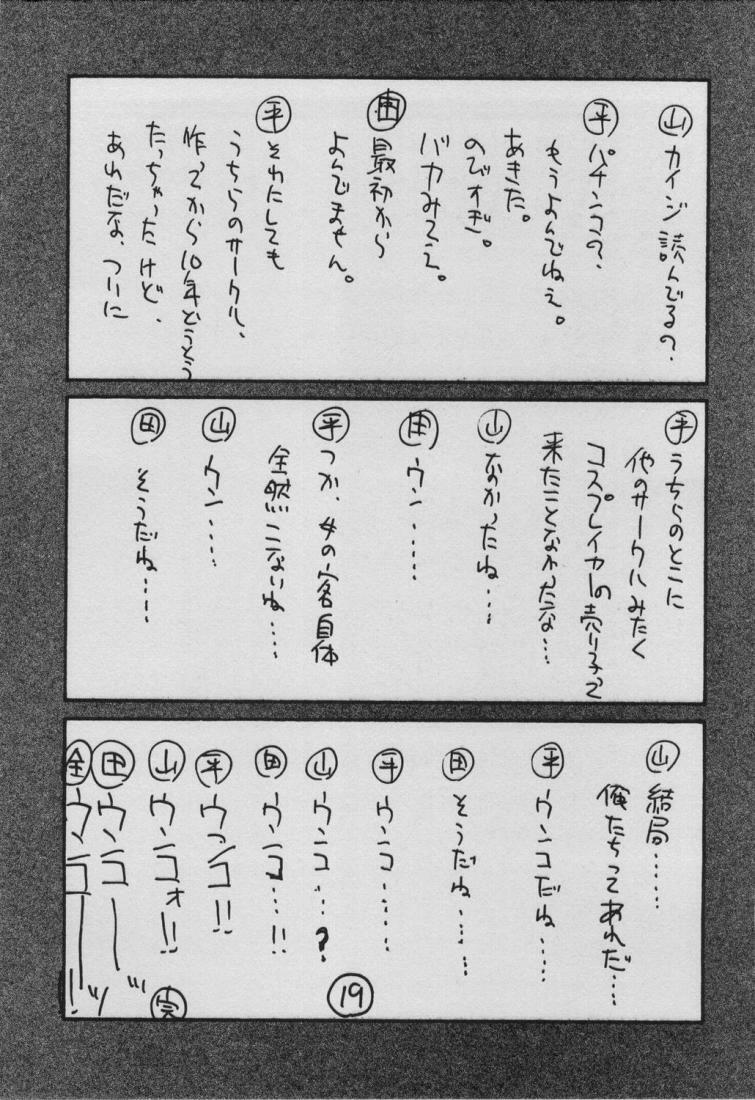 山 カイジ 読んでるの?
平 パチンコの?
もうよんでねえ。
あきた。
のびすぎ。
バカみてえ。
田 最初から
よんでません。
平 それにしても
うちらのサークル、
作ってから10年どうとう
たっちゃったけど、
あれだな、ついに
平 うちらのとこに
他のサークルみたく
コスプレイヤーの売り子って
来たことなかったな…
山 なかったね…
田 ウン……
平 つか、女の客自体
全然こないね……
山 ウン……
田 そうだね……
山 結局……
俺たちってあれだ……
平 ウンコだね……
田 そうだね……
平 ウンコ……
山 ウンコ…?
田 ウンコ…!!
平 ウンコ!!
山 ウンコォ!!
田 ウンコーッ
全 ウンコーッ!
完
19